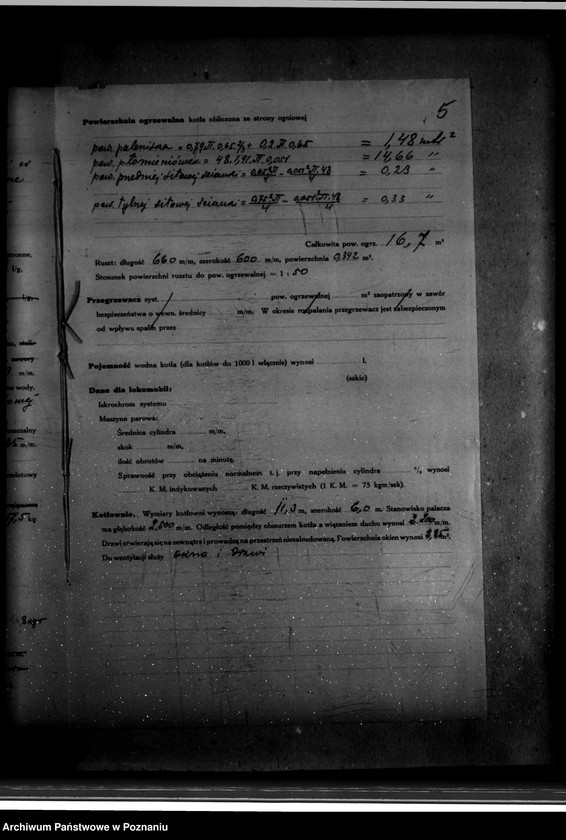 5
Powierzchnia ogrzewalna kotła obliczona ze strony ogniowej
pow. paleniska = 0,79.π.0,65 + 0,2.π.0,65 = 1,48 mtr²
pow. płomieniówek = 48.1,91.π.0,051 = 14,66 "
pow. przedniej sitowej ściany = = 0,23 "
pow. tylnej sitowej ściany = = 0,33 "
Całkowita pow. ogrz. 16,7 m²
Ruszt: długość 660 m/m, szerokość 600 m/m, powierzchnia 0,342 m².
Stosunek powierzchni rusztu do pow. ogrzewalnej = 1 : 50
Przegrzewacz syst. pow. ogrzewalnej m² zaopatrzony w zawór
bezpieczeństwa o wewn. średnicy m/m. W okresie rozpalania przegrzewacz jest zabezpieczonym
od wpływu spalin przez
Pojemność wodna kotła (dla kotłów do 1000 l włącznie) wynosi l.
(szkic)
Dane dla lokomobil:
Iskrochron systemu
Maszyna parowa:
Średnica cylindra m/m,
skok m/m,
ilość obrotów na minutę.
Sprawność przy obciążeniu normalnem t. j. przy napełnieniu cylindra % wynosi
K. M. indykowanych K. M. rzeczywistych (1 K. M. = 75 kgm/sek).
Kotłownia. Wymiary kotłowni wynoszą: długość 11,3 m, szerokość 6,0 m. Stanowisko palacza
ma głębokość 2,500 m/m. Odległość pomiędzy obmurem kotła a wiązaniem dachu wynosi 3.200 m/m.
Drzwi otwierają się na zewnątrz i prowadzą na przestrzeń niezabudowaną. Powierzchnia okien wynosi m².
Do wentylacji służy okno i drzwi
Archiwum Państwowe w Poznaniu